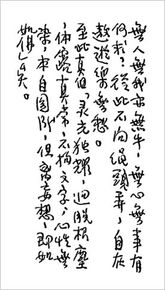 無人無我亦無牛，無心無事有
何求？從此不向繩頭弄，自在
遨遊樂無愁。
至此真個，灵光獨耀，迥脱根塵
，体露真常，不拘文字，心性無
染，本自圆成，但離妄想，即如
如佛矣。